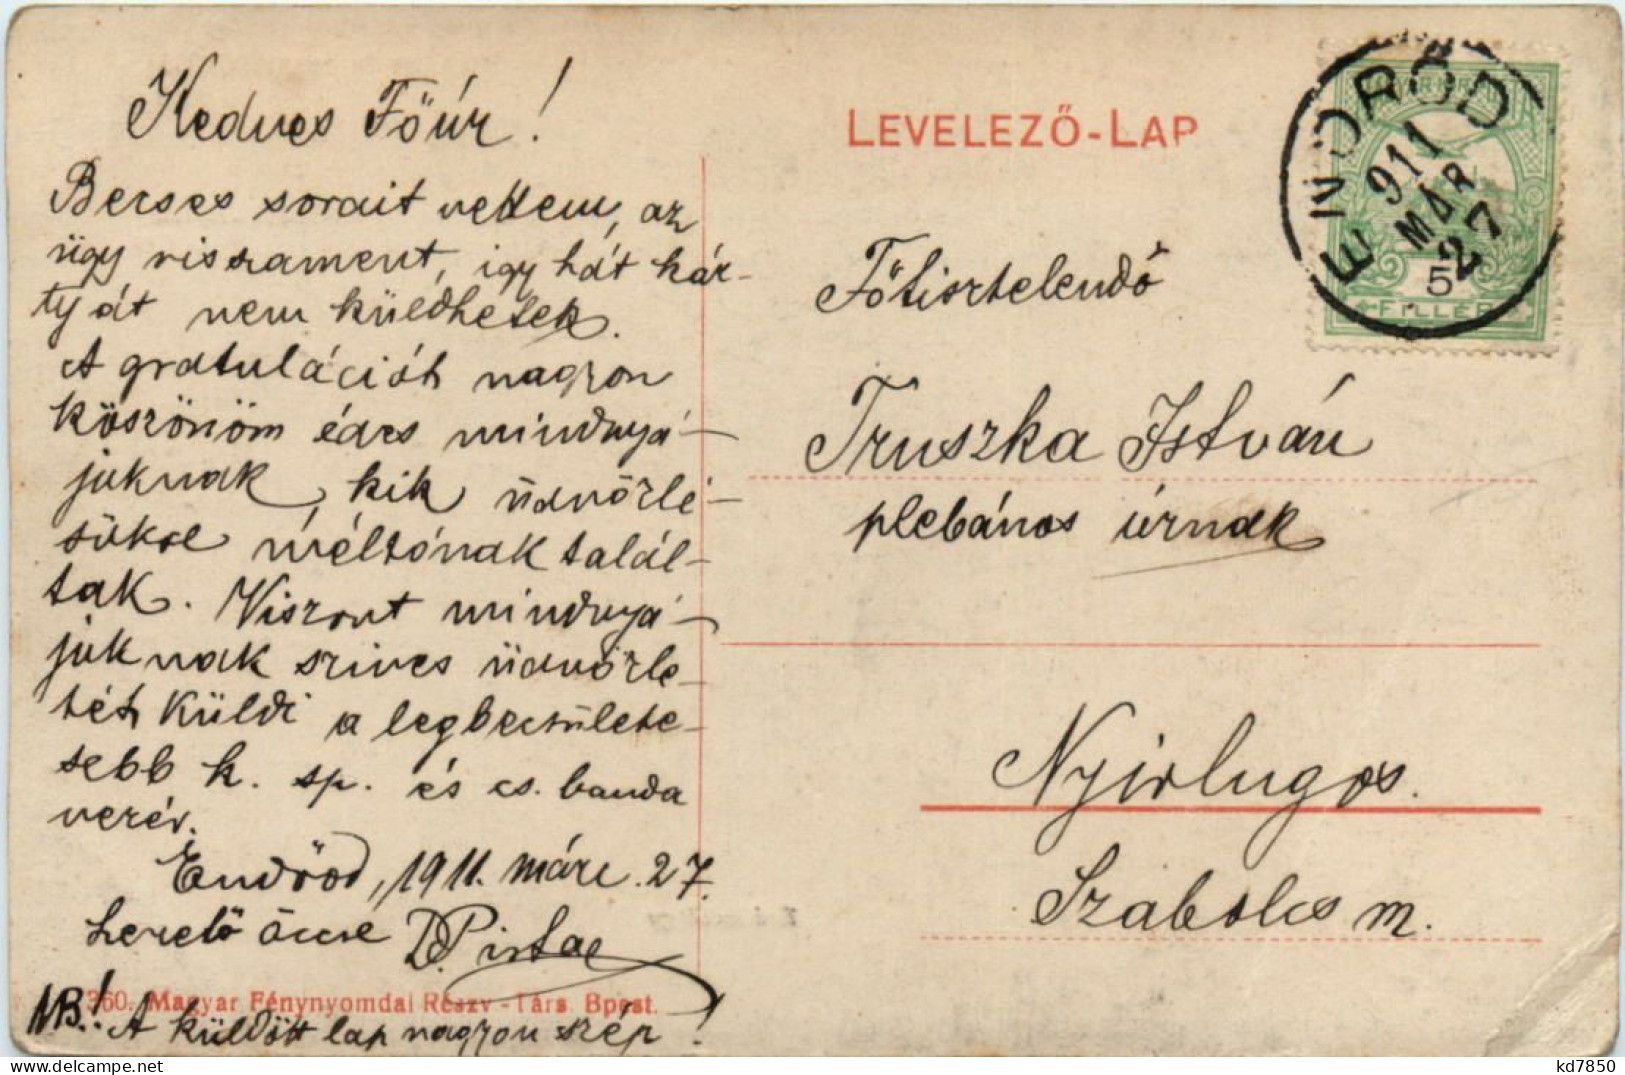 Kedves Főúr!
Becses sorait vettem, az
ügy visszament, igy hát kár-
tyát nem küldhetek.
A gratulációt nagyon
köszönöm édes mindnyá-
juknak, kik üdvözlé-
sükre méltónak talál-
tak. Viszont mindnyá-
juknak szives üdvözle-
tét küldi a legbecsülete-
sebb k. sp. és cs. banda
nevén.
Endrőd, 1911. márc. 27.
szerető öccse D. Pista
360. Magyar Fénynyomdai Részv.-Társ. Bpest.
NB! A küldött lap nagyon szép!
LEVELEZŐ-LAP
ENDRŐD
911
MÁR
27
5
FILLÉR
Főtisztelendő
Truszka István
plebános úrnak
Nyirlugos.
Szabolcs m.
kd7850